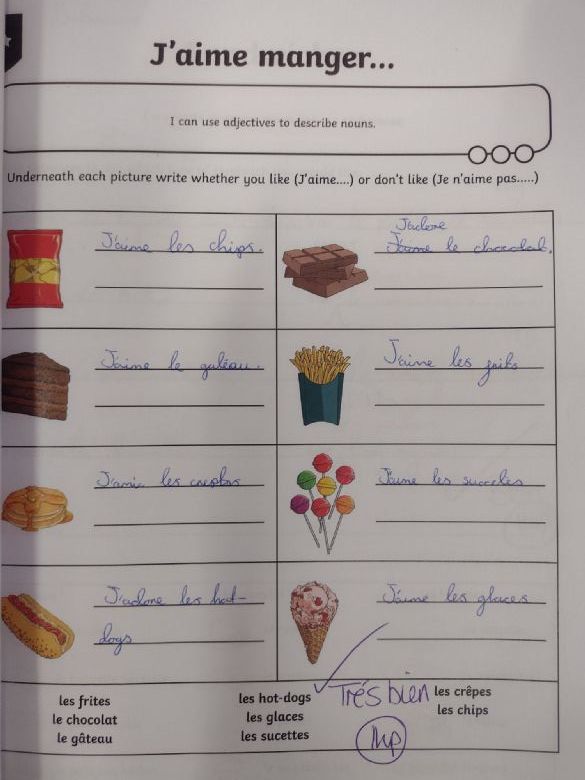 J'aime manger...
I can use adjectives to describe nouns.
Underneath each picture write whether you like (J'aime....) or don't like (Je n'aime pas.....)
J'aime les chips.
J'adore
J'aime le chocolat.
J'aime le gâteau.
J'aime les frits
J'ami les crepbs
J'aime les succetes
J'adore les hot-
dogs
J'aime les glaces
les frites
le chocolat
le gâteau
les hot-dogs
les glaces
les sucettes
Trés bien
les crêpes
les chips
1hp